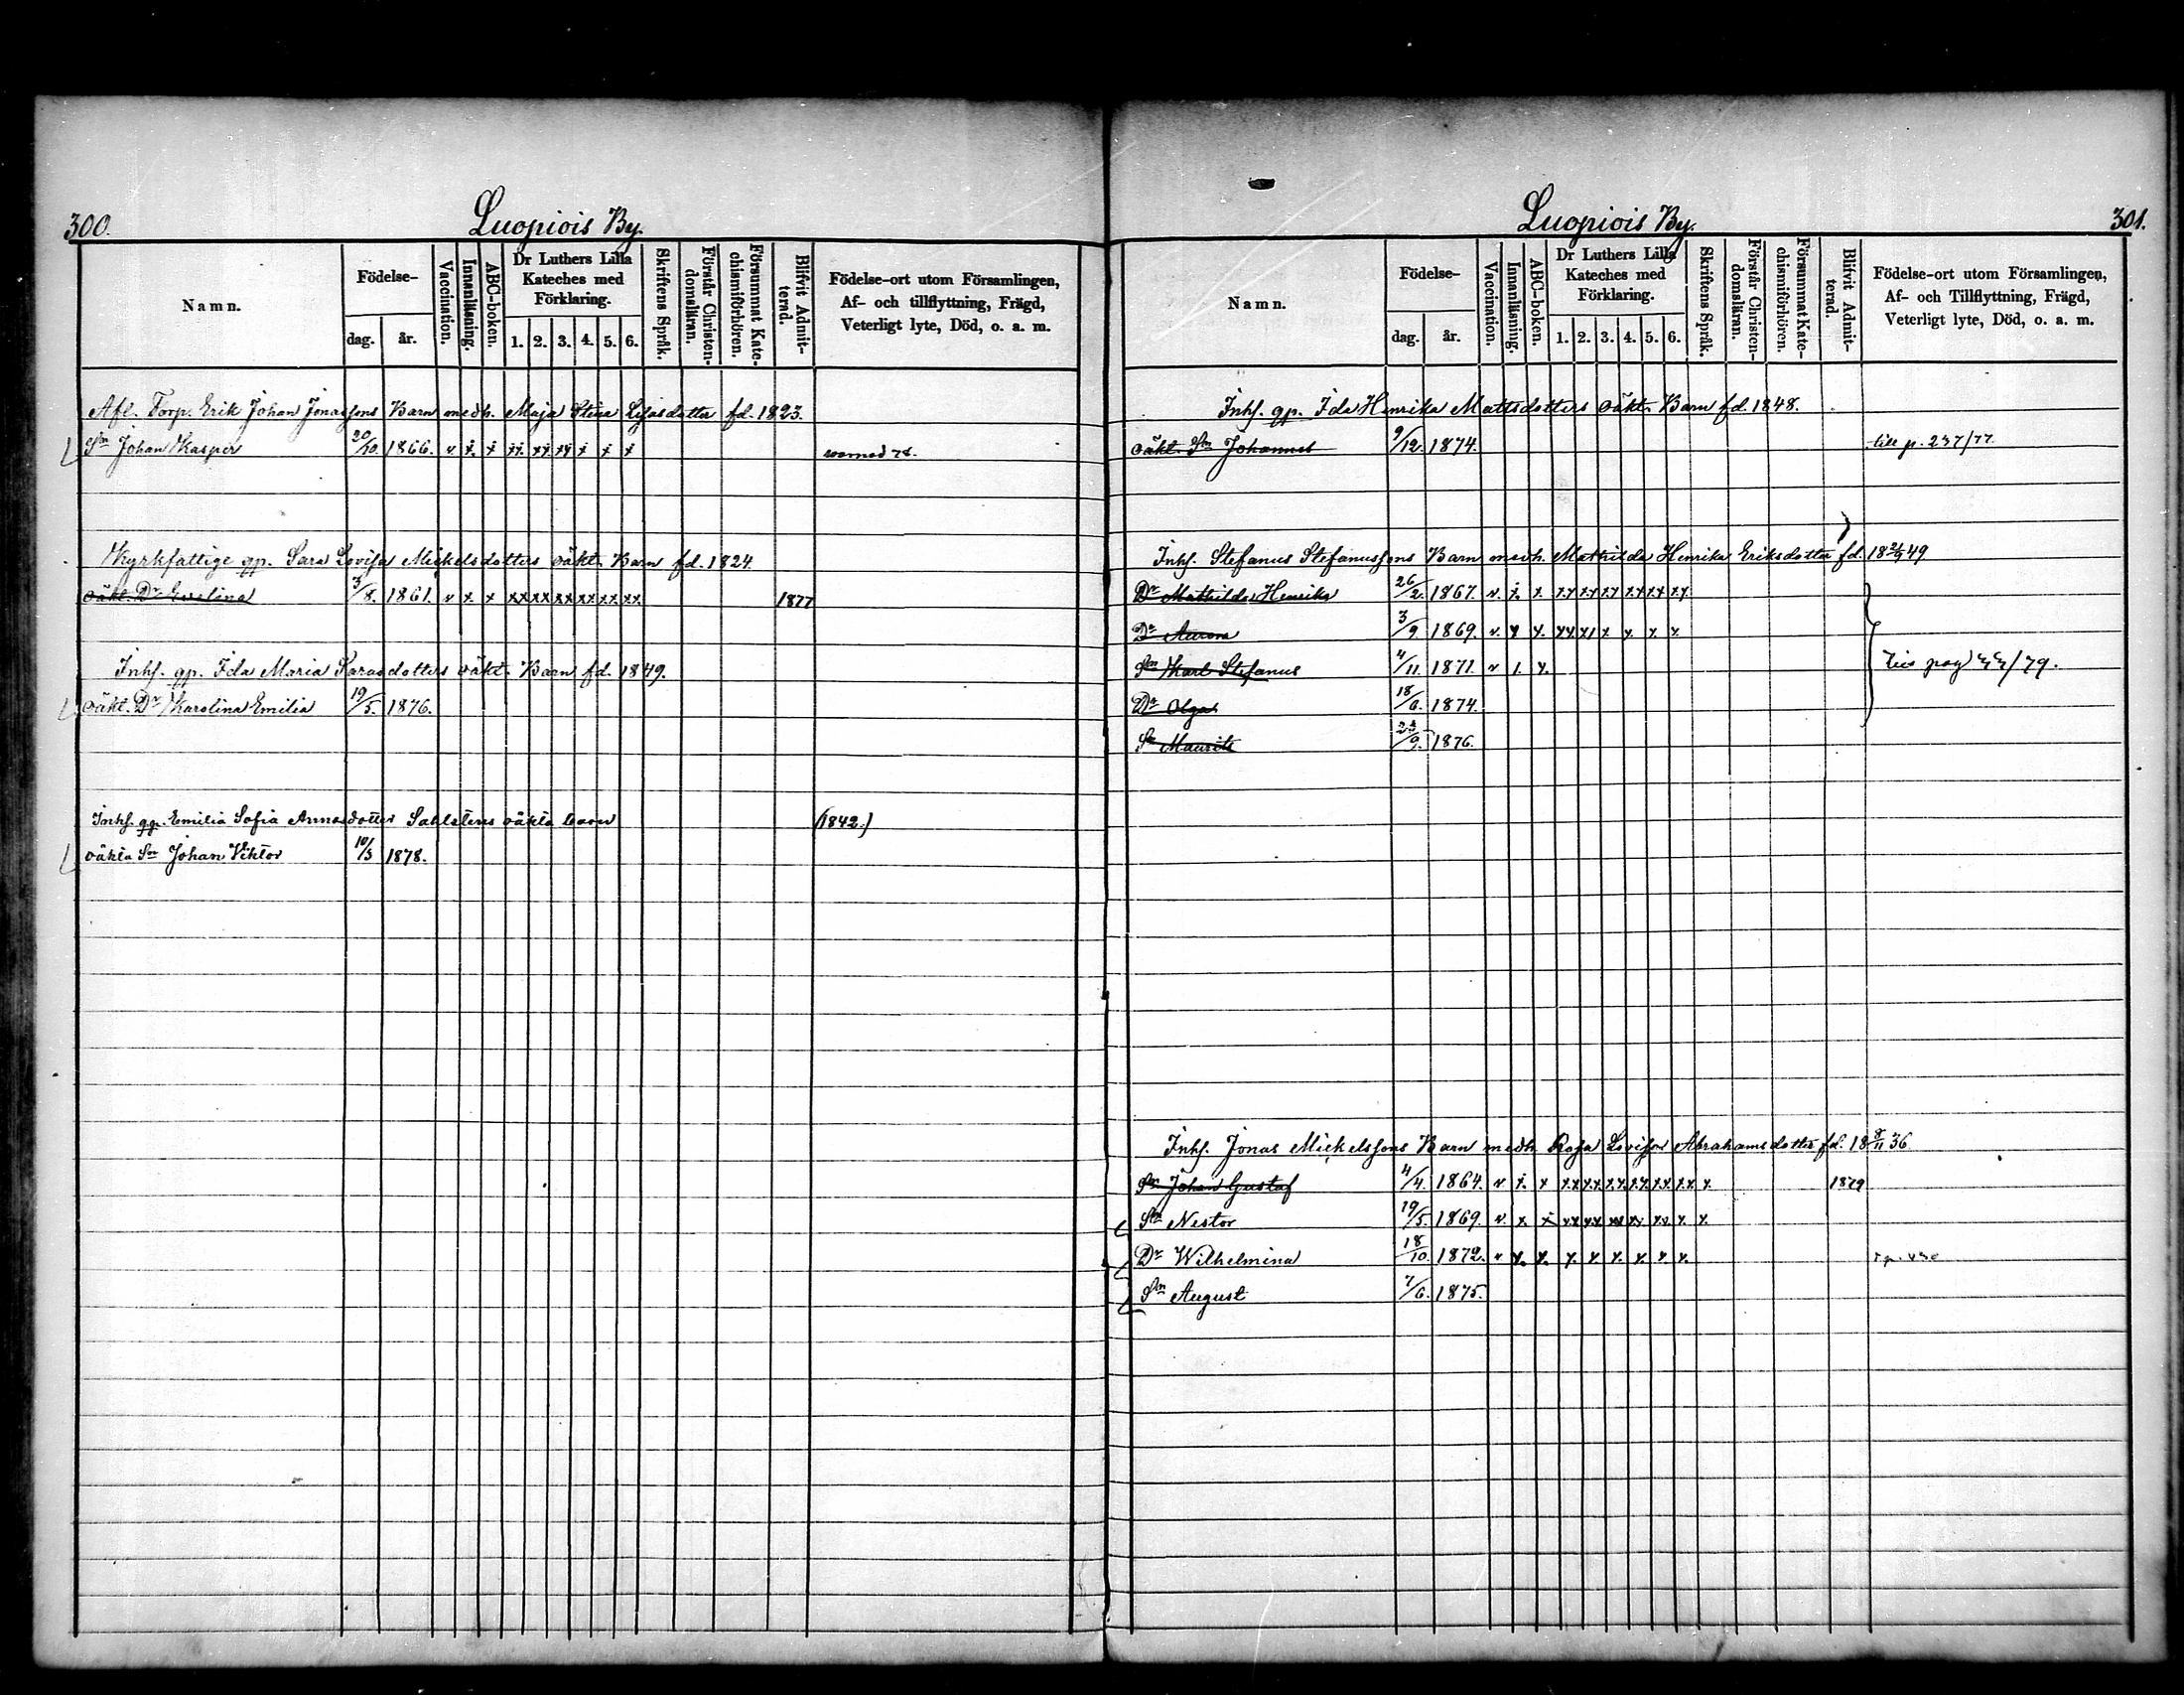 300.
Luopiois By.
Namn.
Födelse-
dag.
år.
Vaccination.
Innanläsning.
ABC-boken.
Dr Luthers Lilla Kateches med Förklaring.
1. 2. 3. 4. 5. 6.
Skriftens Språk.
Förstår Christendomsläran.
Försummat Katechismiförhören.
Blifvit Admitterad.
Födelse-ort utom Församlingen,
Af- och tillflyttning, Frägd,
Veterligt lyte, Död, o. a. m.
Afl. Torp. Erik Johan Jonassons Barn medh. Maja Stina Lisasdotter fd. 1823.
Sn Johan Kasper 20/10. 1866. v x x xx xx xx x x x
Kyrkfattige qp. Sara Lovisa Mickelsdotters oäkt. Barn fd. 1824.
oäkt. Dr Evelina 3/8. 1861. v x x xx xx xx xx xx xx 1877
Inhs. qp. Ida Maria Sarasdotters oäkt. Barn fd. 1849.
oäkt. Dr Karolina Emilia 19/5. 1876.
Inhs. qp. Emilia Sofia Annasdotter Sahlstens oäkta barn (1842.)
oäkta Sn Johan Viktor 10/3 1878.
301.
Luopiois By.
Namn.
Födelse-
dag.
år.
Vaccination.
Innanläsning.
ABC-boken.
Dr Luthers Lilla Kateches med Förklaring.
1. 2. 3. 4. 5. 6.
Skriftens Språk.
Förstår Christendomsläran.
Försummat Katechismiförhören.
Blifvit Admitterad.
Födelse-ort utom Församlingen,
Af- och Tillflyttning, Frägd,
Veterligt lyte, Död, o. a. m.
Inhs. qp. Ida Henrika Mattsdotters oäkt. Barn fd. 1848.
oäkt. Sn Johannes 9/12. 1874. till p. 237/77
Inhs. Stefanus Stefanussons Barn medh. Mathilda Henrika Eriksdotter fd. 18 49
Dr Mathilda Henrika 26/2. 1867. v. x. x. xx xx xx xx xx xx
Dr Aurora 3/9. 1869. v. x x. xx xx x x. x. x.
Sn Karl Stefanus 4/11. 1871. v 1. x.
Dr Olga 18/6. 1874.
Sn Maurits /9. 1876.
Inhs. Jonas Mickelssons Barn medh. Rosa Lovisa Abrahamsdotter fd. 18 8/11 36
Sn Johan Gustaf 4/4. 1864. v x. x xx xx xx xx xx xx x. 1879
Sn Nestor 19/5. 1869. v. x. x xx xx xx xx xx. x. x.
Dr Wilhelmina 18/10. 1872. v x. x. x. x. x. x. x. x.
Sn August 7/6. 1875.